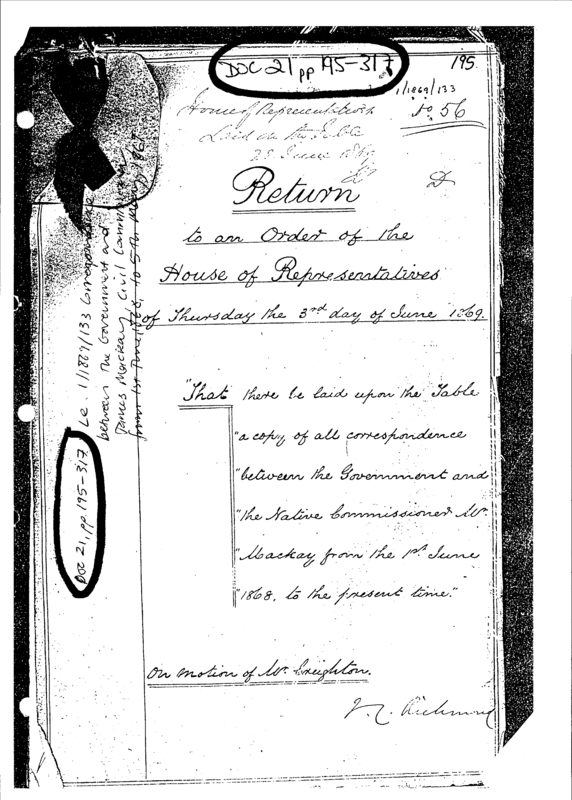 DOC 21 pp 195-317
195
1/1869/133
No 56
House of Representatives
Laid on the Table
June
D
Return
to an Order of the
House of Representatives
of Thursday the 3rd day of June 1869.
"That there be laid upon the Table
"a copy of all correspondence
"between the Government and
"the Native Commissioner Mr.
"Mackay from the 1st June
"1868, to the present time."
On motion of Mr. Creighton.
Richmond
Doc 21, pp. 195-317. 1/1869/133 Correspondence
between the Government and
James Mackay, Civil Commissioner
from 1st June 1868, to 5th